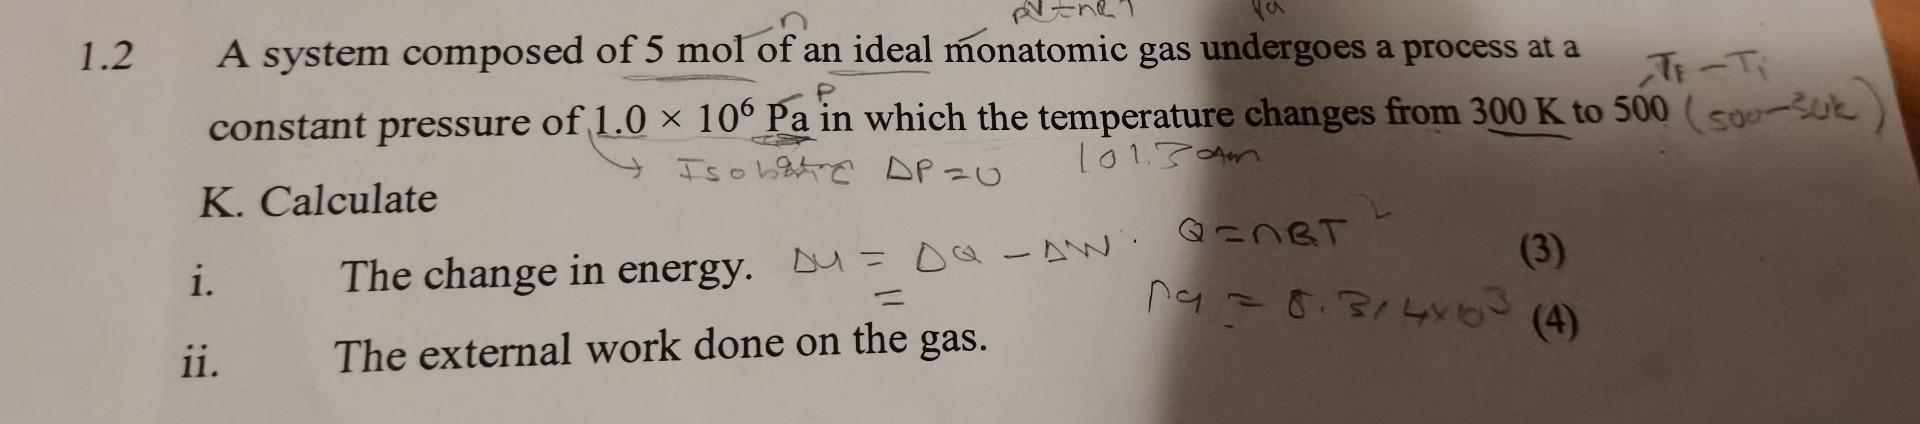 n pV=nRT
1.2 A system composed of 5 mol of an ideal monatomic gas undergoes a process at a
P TF-Ti
constant pressure of 1.0 × 10⁶ Pa in which the temperature changes from 300 K to 500 (500-300K)
Isobaric ΔP=0 101.3
K. Calculate
i. The change in energy. ΔU = ΔQ - ΔW. (3)
=
ii. The external work done on the gas. = 8.314×10³ (4)